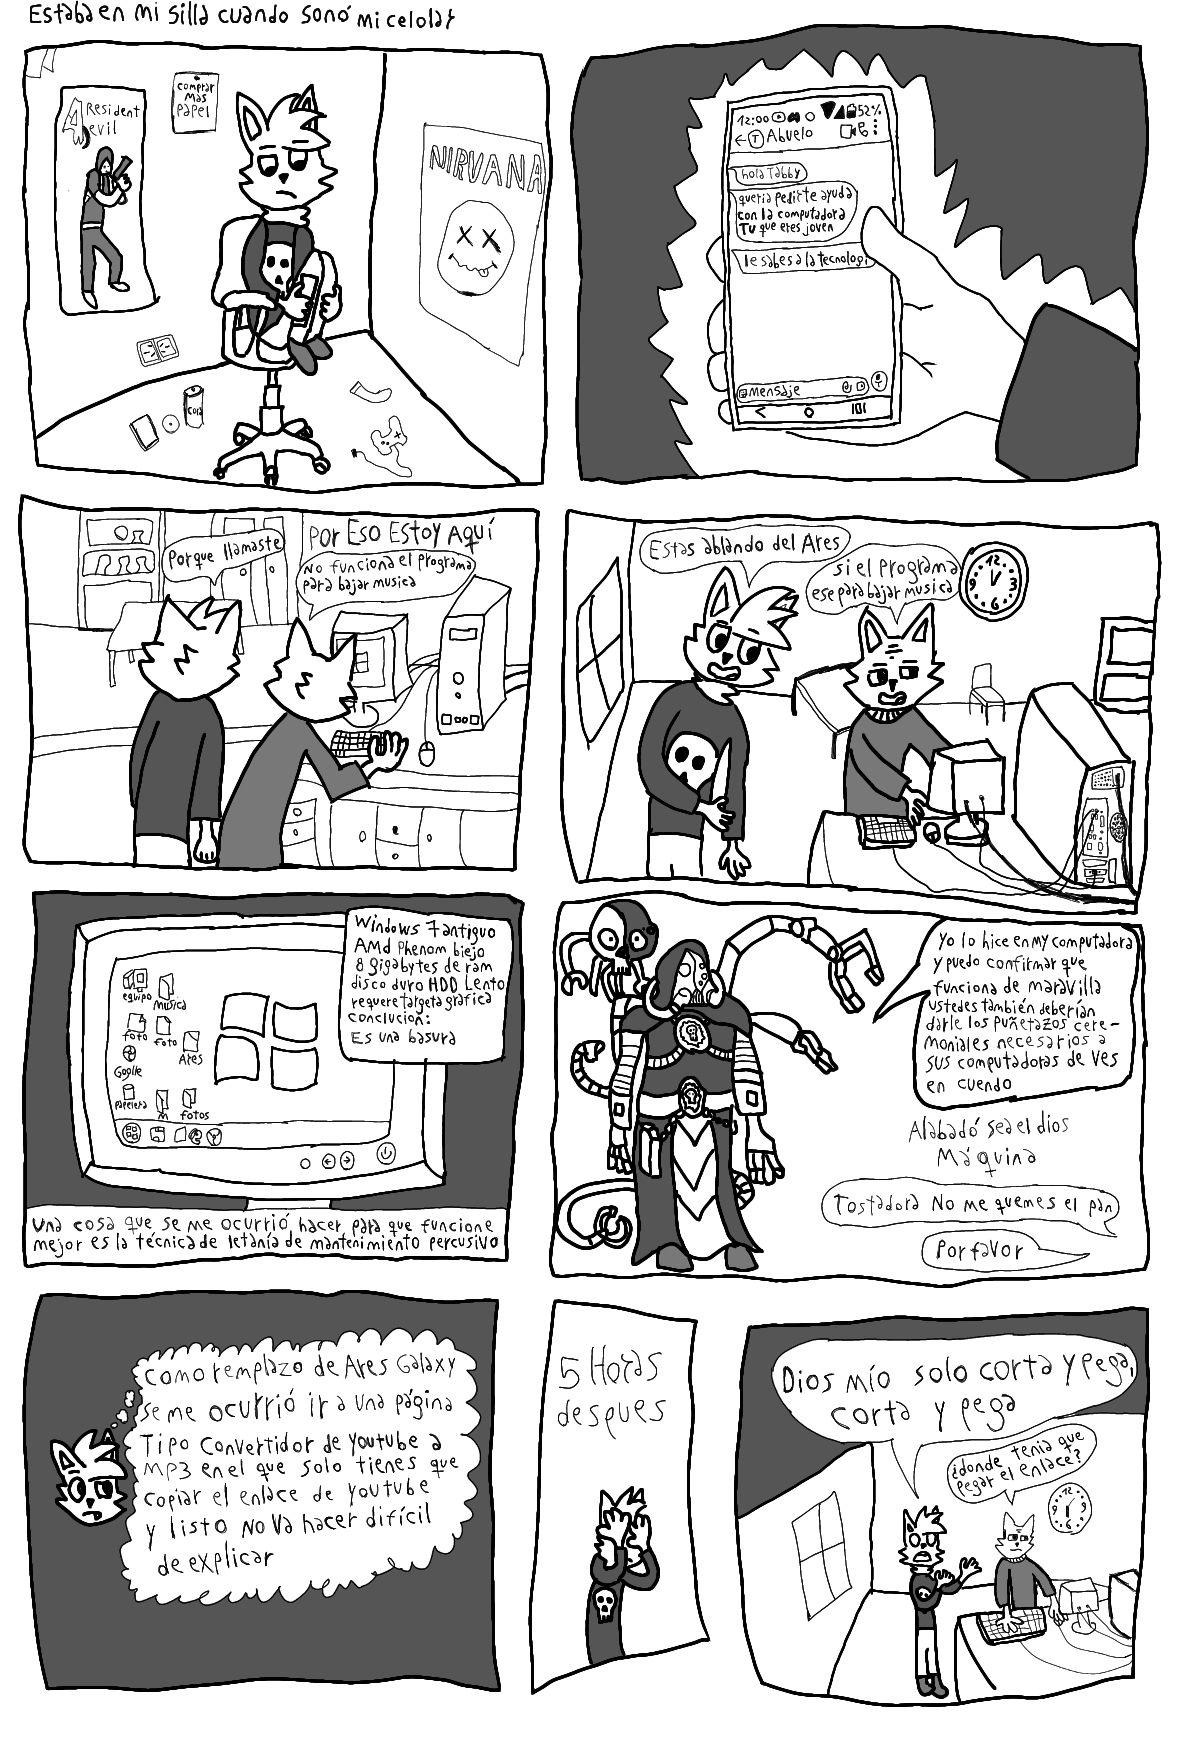 Estaba en mi silla cuando sonó mi celolar
Resident
evil
4
comprar
Mas
papel
NIRVANA
cola
12:00 52%
T Abuelo
hola Tabby
queria pedirte ayuda
con la computadora
Tu que eres joven
le sabes a la tecnologi
mensaje
Porque llamaste
Por Eso Estoy Aquí
No funciona el programa
para bajar musica
Estas ablando del Ares
si el programa
ese para bajar musica
12
9 3
6
Windows 7 antiguo
AMd Phenom biejo
8 gigabytes de ram
disco duro HDD Lento
requere targeta grafica
conclucion:
Es una basura
equipo
musica
foto
foto
Ares
Goglle
papelera
M
fotos
Una cosa que se me ocurrió hacer para que funcione
mejor es la técnica de letanía de mantenimiento percusivo
Yo lo hice en MY computadora
y puedo confirmar que
funciona de maravilla
ustedes también deberían
darle los puñetazos cere-
moniales necesarios a
sus computadoras de ves
en cuendo
Alabadó sea el dios
Máquina
Tostadora No me quemes el pan
Por favor
Como remplazo de Ares Galaxy
se me ocurrió ir a una página
Tipo convertidor de youtube a
MP3 en el que solo tienes que
copiar el enlace de youtube
y listo no va hacer difícil
de explicar
5 Horas
despues
Dios mío solo corta y pega,
corta y pega
¿donde tenia que
pegar el enlace?
12
9
6